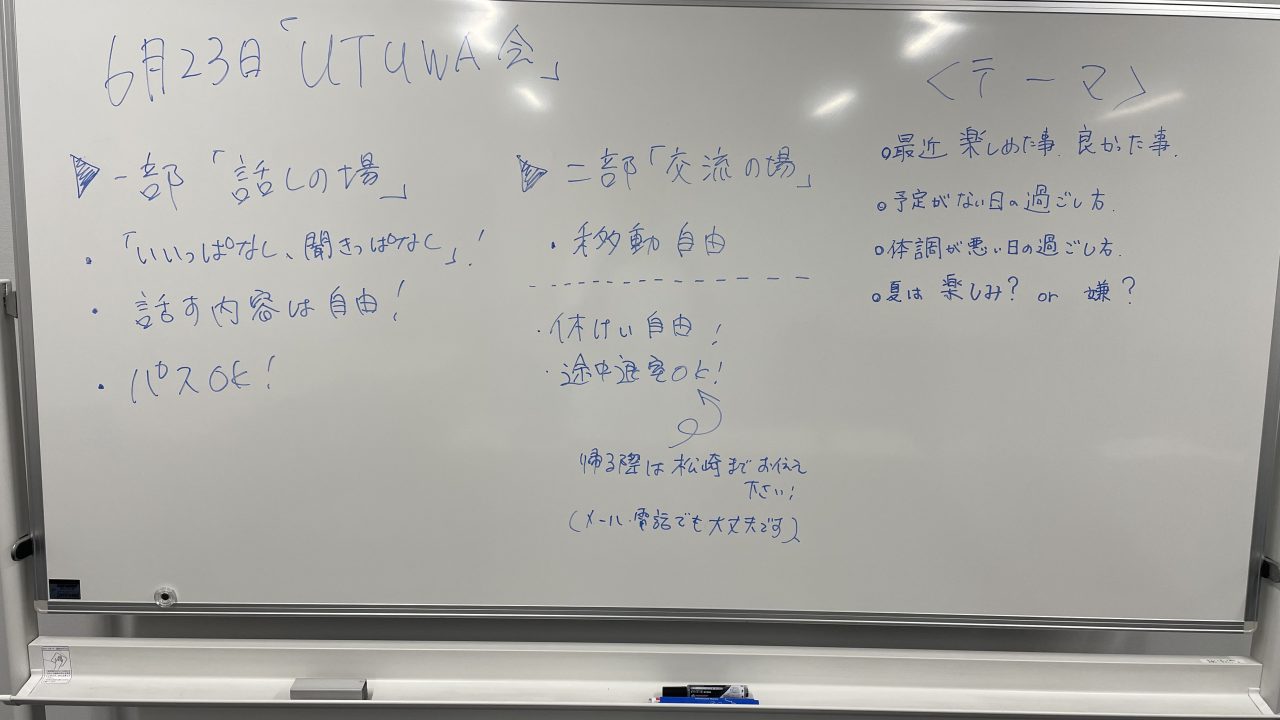 6月23日「UTUWA会」
▶一部「話しの場」
・「いいっぱなし、聞きっぱなし」！
・話す内容は自由！
・パスOK！
▶二部「交流の場」
・移動自由
・休けい自由！
・途中退室OK！
帰る際は松崎までお伝え
下さい！
(メール・電話でも大丈夫です)
<テーマ>
○最近 楽しめた事. 良かった事.
○予定がない日の過ごし方.
○体調が悪い日の過ごし方.
○夏は 楽しみ？ or 嫌？